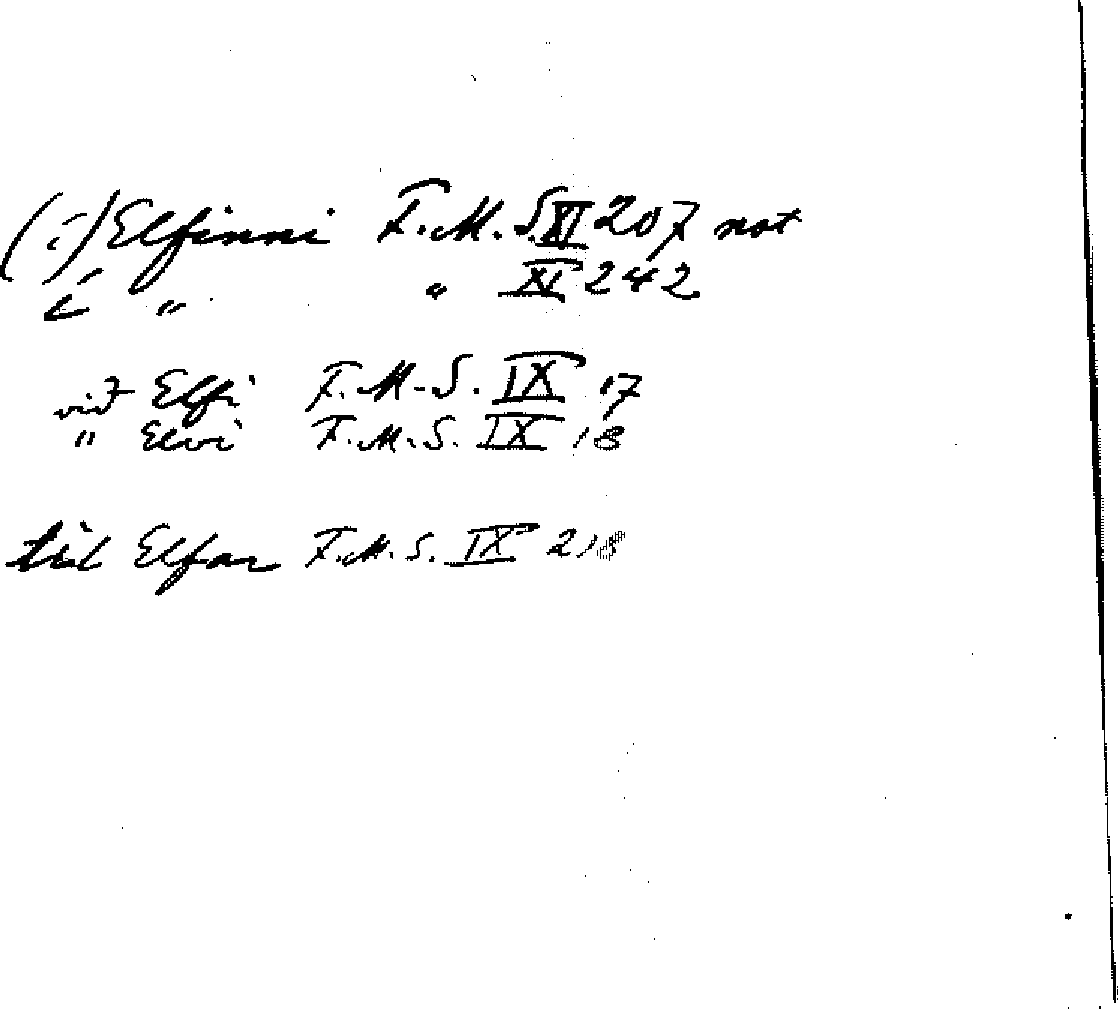 (í) Elfinni F. M. S. XI 207 not
í " " XI 242
við Elfi F. M. S. IX 17
" Elvi F. M. S. IX 18
til Elfar F. M. S. IX 218